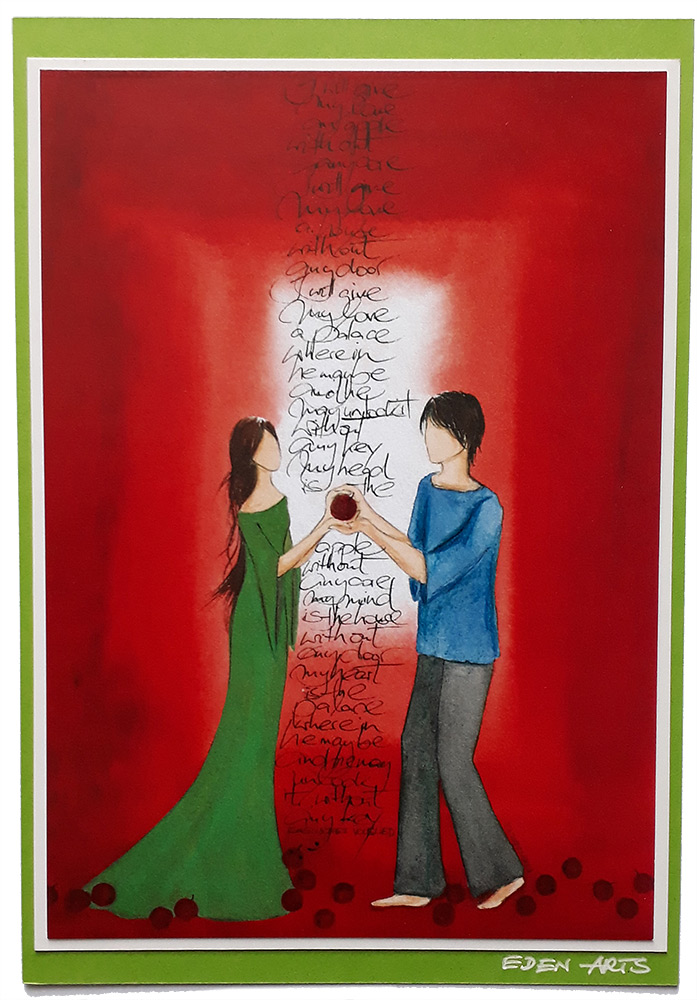 I will give
my love
an apple
without
any core
I will give
my love
a house
without
any door
I will give
my love
a palace
wherein
he may be
and he
may unlock it
without
any key
My head
is the
apple
without
any core
my mind
is the house
without
any door
my heart
is the
palace
wherein
he may be
and he may
unlock
it without
any key
EDEN ARTS